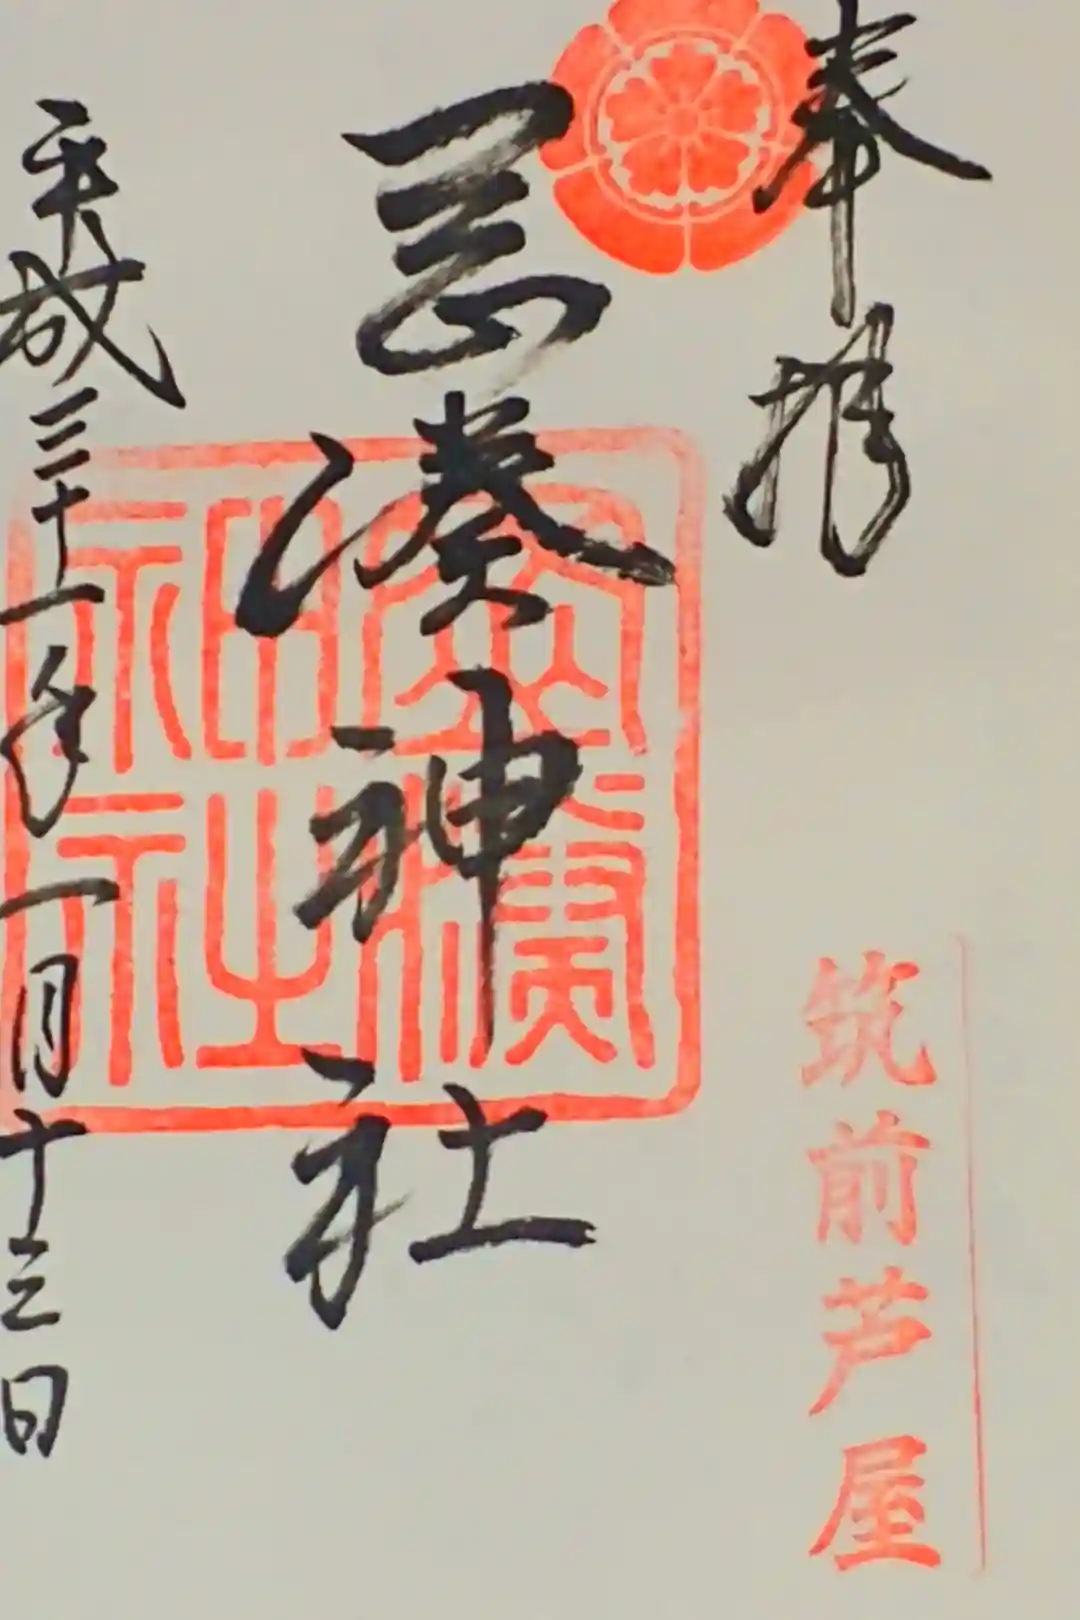 奉拝
筑前芦屋
岡湊神社
神社
平成三十一年一月十三日